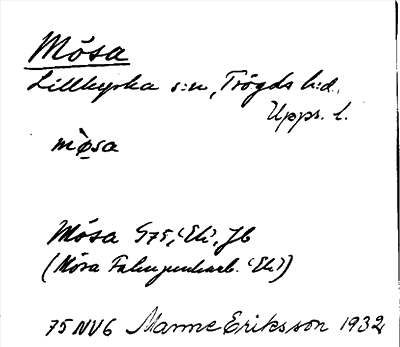 Mősa
Lillkyrka s:n, Trögds h:d.
Upps. l.
mø̀sa
Mősa G75, 'Ek', Jb
(Mösa 'Ek')
75 NV6 Manne Eriksson 1932